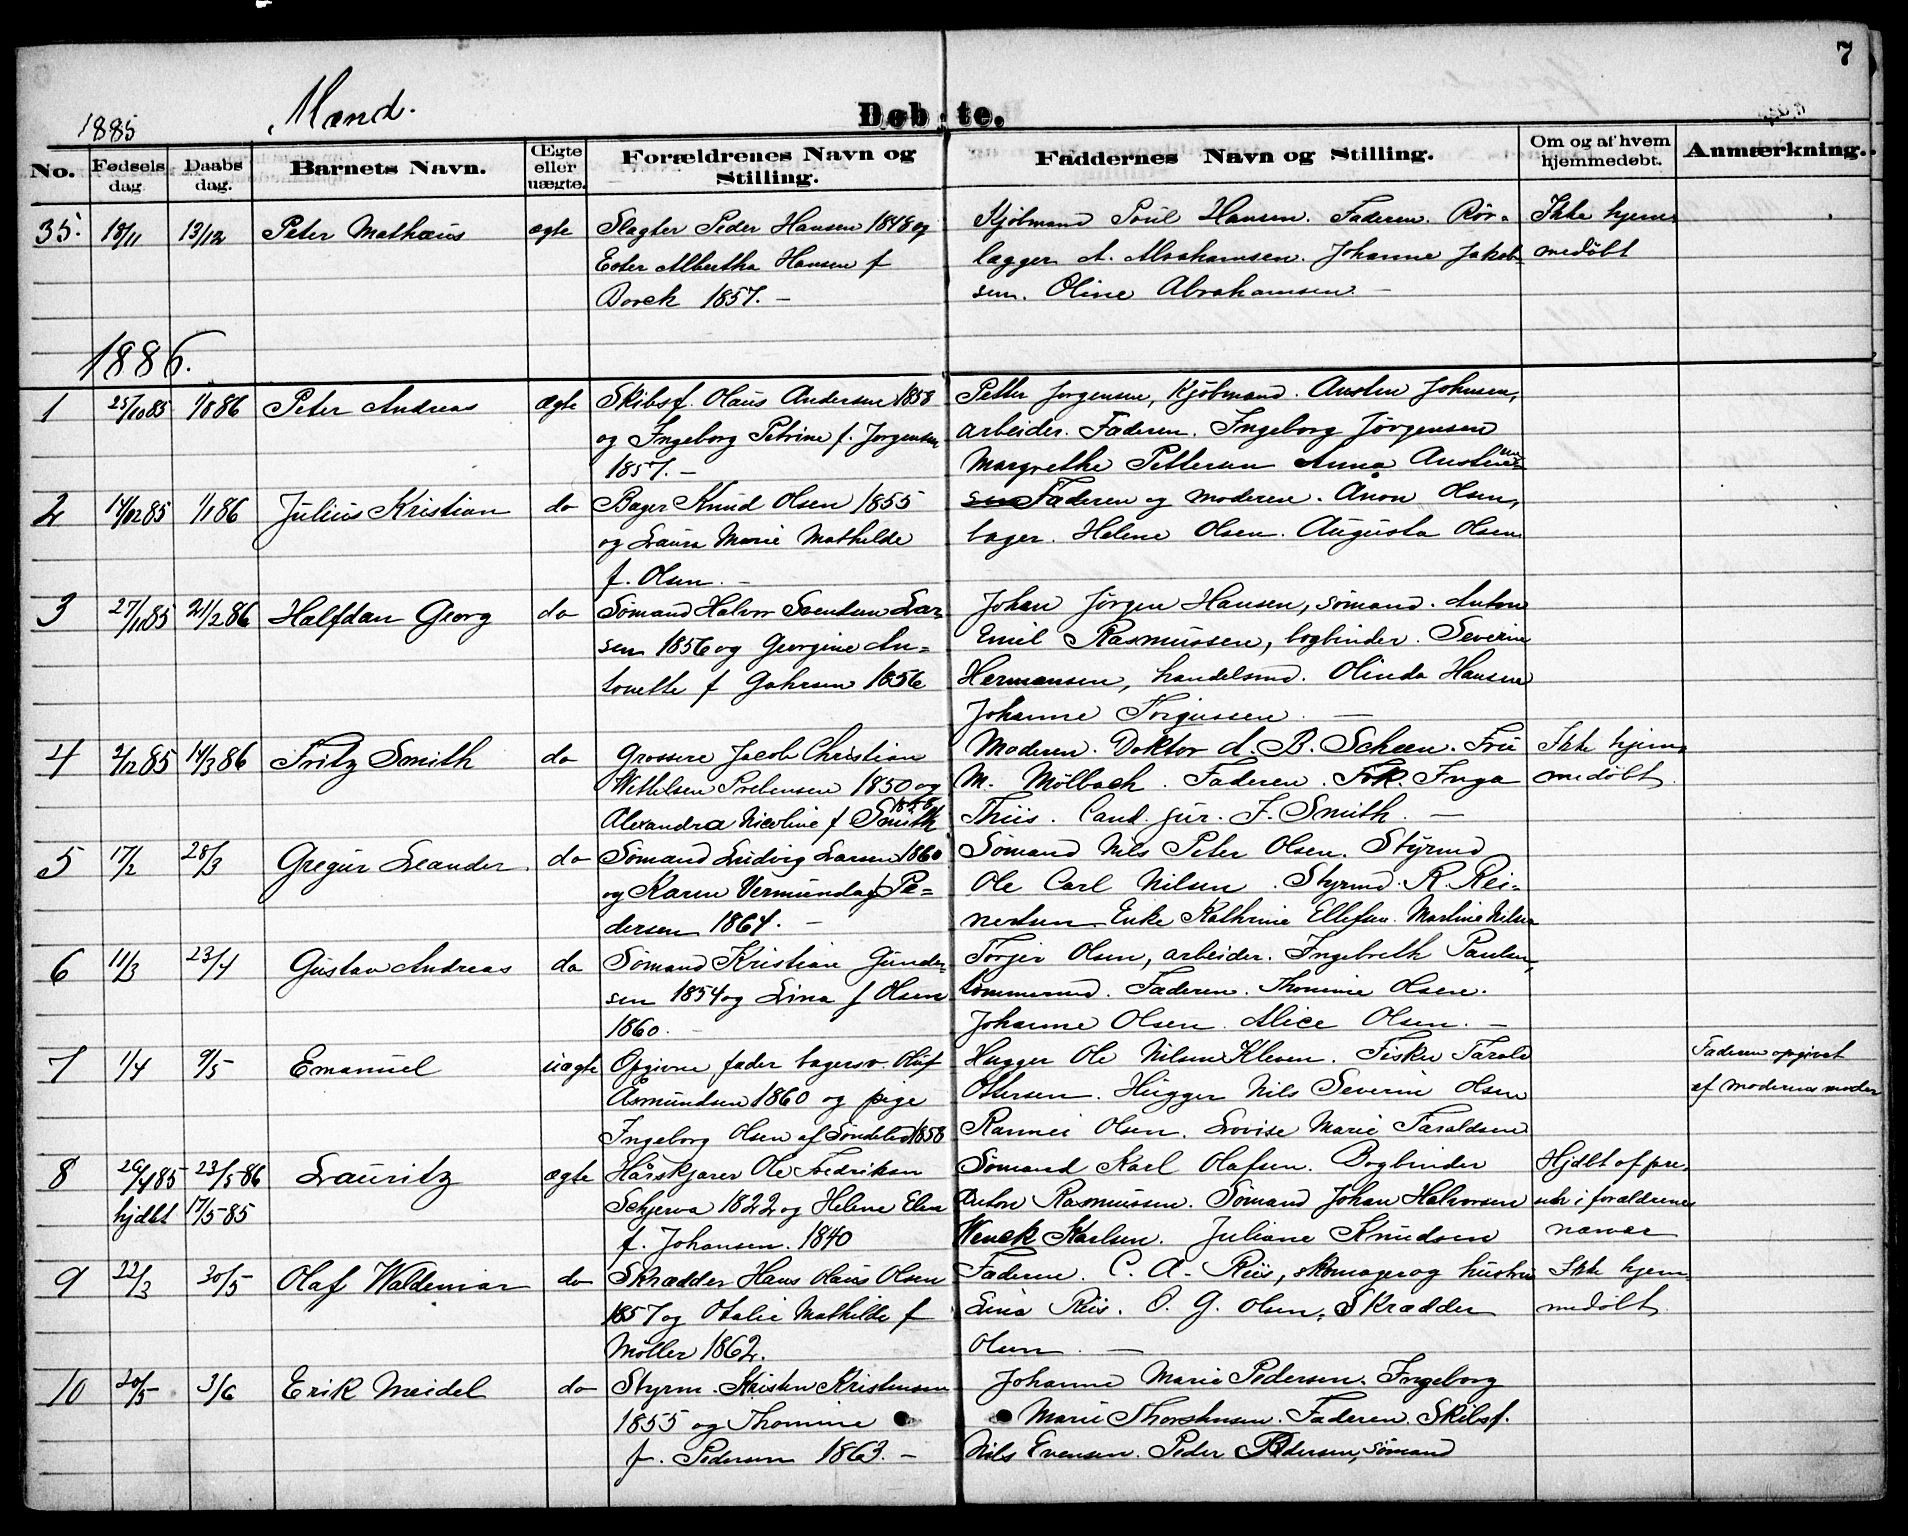 7
1885 Mænd.
Døbte.
No. Fødsels dag. Daabs dag. Barnets Navn. Œgte eller uægte. Forældrenes Navn og Stilling. Faddernes Navn og Stilling. Om og af hvem hjemmedøbt. Anmærkning.
35. 18/11 13/12 Peter Mathæus ægte Slagter Peder Hansen 1848 og Kjøbmand Poul Hansen. Faderen. Rør- Ikke hjem-
Ester Albertha Hansen f lægger A. Abrahamsen. Johanne Jakob- medøbt
Borck 1857. - sen. Oline Abrahamsen -
1886.
1 25/10 85 1/1 86 Peter Andreas ægte Skibsf. Olaus Andersen 1858 Petter Jørgensen, Kjøbmand. Austen Johnsen,
og Ingeborg Petrine f. Jørgensen arbeider. Faderen. Ingeborg Jørgensen
1857. - Margrethe Pettersen Anna Austen
2 14/12 85 1/1 86 Julius Kristian do Bager Knud Olsen 1855 Faderen og moderen. Anon Olsen,
og Laura Marie Mathilde bager. Helene Olsen. Augusta Olsen
f. Olsen. -
3 27/11 85 21/2 86 Halfdan Georg do Sømand Halvor Svendsen Lar- Johan Jørgen Hansen, sømand. Anton
sen 1856 og Georgine An- Emil Rasmussen, bogbinder. Severin
tonette f Gahrsen 1856 Hermansen, handelsmd. Olinda Hansen
Johanne Torgussen -
4 2/12 85 14/3 86 Fritz Smith do Grosserer Jacob Christian Moderen. Doktor A. B. Scheen. Fru Ikke hjem-
Wettelsen Prebensen 1850 og M. Mølbach. Faderen Frk. Inga medøbt.
Alexandra Nicoline f Smith 1858 Thiis. Cand. jur. F. Smith. -
5 17/2 28/3 Gregur Leander. do Sømand Ludvig Larsen 1860 Sømand Nils Peter Olsen. Styrmd
og Karen Vermunda f Pe- Ole Carl Nilsen. Styrmd. R. Rei-
dersen 1864. - nertsen Enke Kathrine Ellefsen. Martine Nilsen
6 11/3 23/4 Gustav Andreas do Sømand Kristian Gunder- Torjer Olsen, arbeider. Ingebreth Paulsen,
sen 1854 og Lina f Olsen tømmermd. Faderen. Thomine Olsen.
1860. - Johanne Olsen. Alice Olsen. -
7 1/4 9/5 Emanuel uægte Opgiven fader bagersv. Oluf Hugger Ole Nilsen Kleven. Fisker Tarald Faderen opgivet
Asmundsen 1860 og pige Ottersen. Hugger Nils Severin Olsen af moderens moder
Ingeborg Olsen af Søndeled 1858 Rannei Olsen. Lovise Marie Taraldsen
8 26/4 85 23/5 86 Lauritz ægte Hårskjærer Ole Fredriksen Sømand Karl Olafsen. Bogbinder Hjdbt af pre-
hjdbt 17/5 85 Schjerva 1822 og Helene Elen Anton Rasmussen. Sømand Johan Halvorsen sten i forældrenes
f. Johansen. 1840 Wenck Karlsen. Juliane Knudsen nærvær
9 22/3 30/5 Olaf Waldemar do Skrædder Hans Olaus Olsen Faderen. C. A. Riis, skomager og hustru Ikke hjem-
1857 og Otalie Mathilde f Lina Riis. O. G. Olsen, Skrædder medøbt.
Møller 1862. Olsen. -
10 20/5 3/6 Erik Meidel do Styrm. Kristen Kristensen Johanne Marie Pedersen. Ingeborg
1855 og Thomine Marie Thorstensen. Faderen. Skibsf.
f. Pedersen 1863. - Nils Evensen. Peder Pedersen, sømand